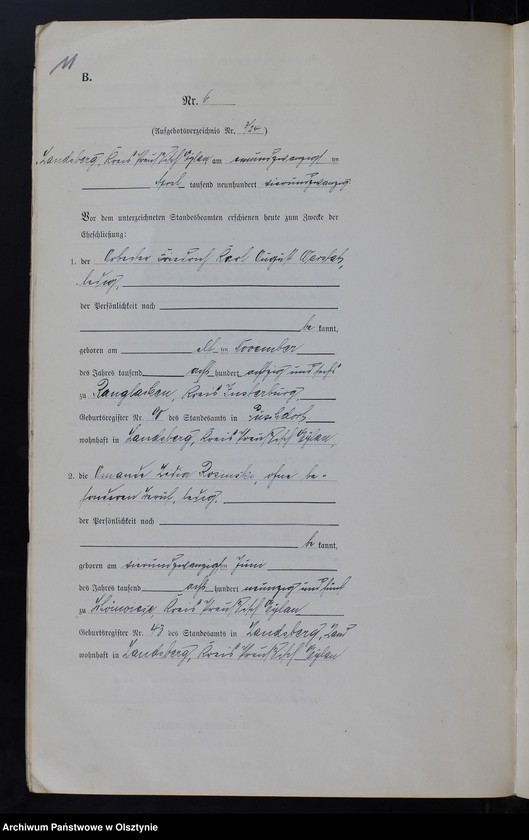 11
B.
Nr. 6
(Aufgebotsverzeichnis Nr. 7/24)
Landsberg, Kreis Preußisch Eylau am einundzwanzigsten
April tausend neunhundert vierundzwanzig
Vor dem unterzeichneten Standesbeamten erschienen heute zum Zwecke der
Eheschließung:
1. der Arbeiter Friedrich Karl August
ledig,
der Persönlichkeit nach
be kannt,
geboren am elften November
des Jahres tausend acht hundert achtzig und sechs
zu Ranglacken, Kreis Insterburg,
Geburtsregister Nr. des Standesamts in Puschdorf
wohnhaft in Landsberg, Kreis Preußisch Eylau,
2. die Amanda Lydia ohne be-
sonderen Beruf, ledig,
der Persönlichkeit nach
be kannt,
geboren am vierundzwanzigsten Juni
des Jahres tausend acht hundert neunzig und fünf
zu Kreis Preußisch Eylau
Geburtsregister Nr. 43 des Standesamts in Landsberg, Land
wohnhaft in Landsberg, Kreis Preußisch Eylau
Archiwum Państwowe w Olsztynie